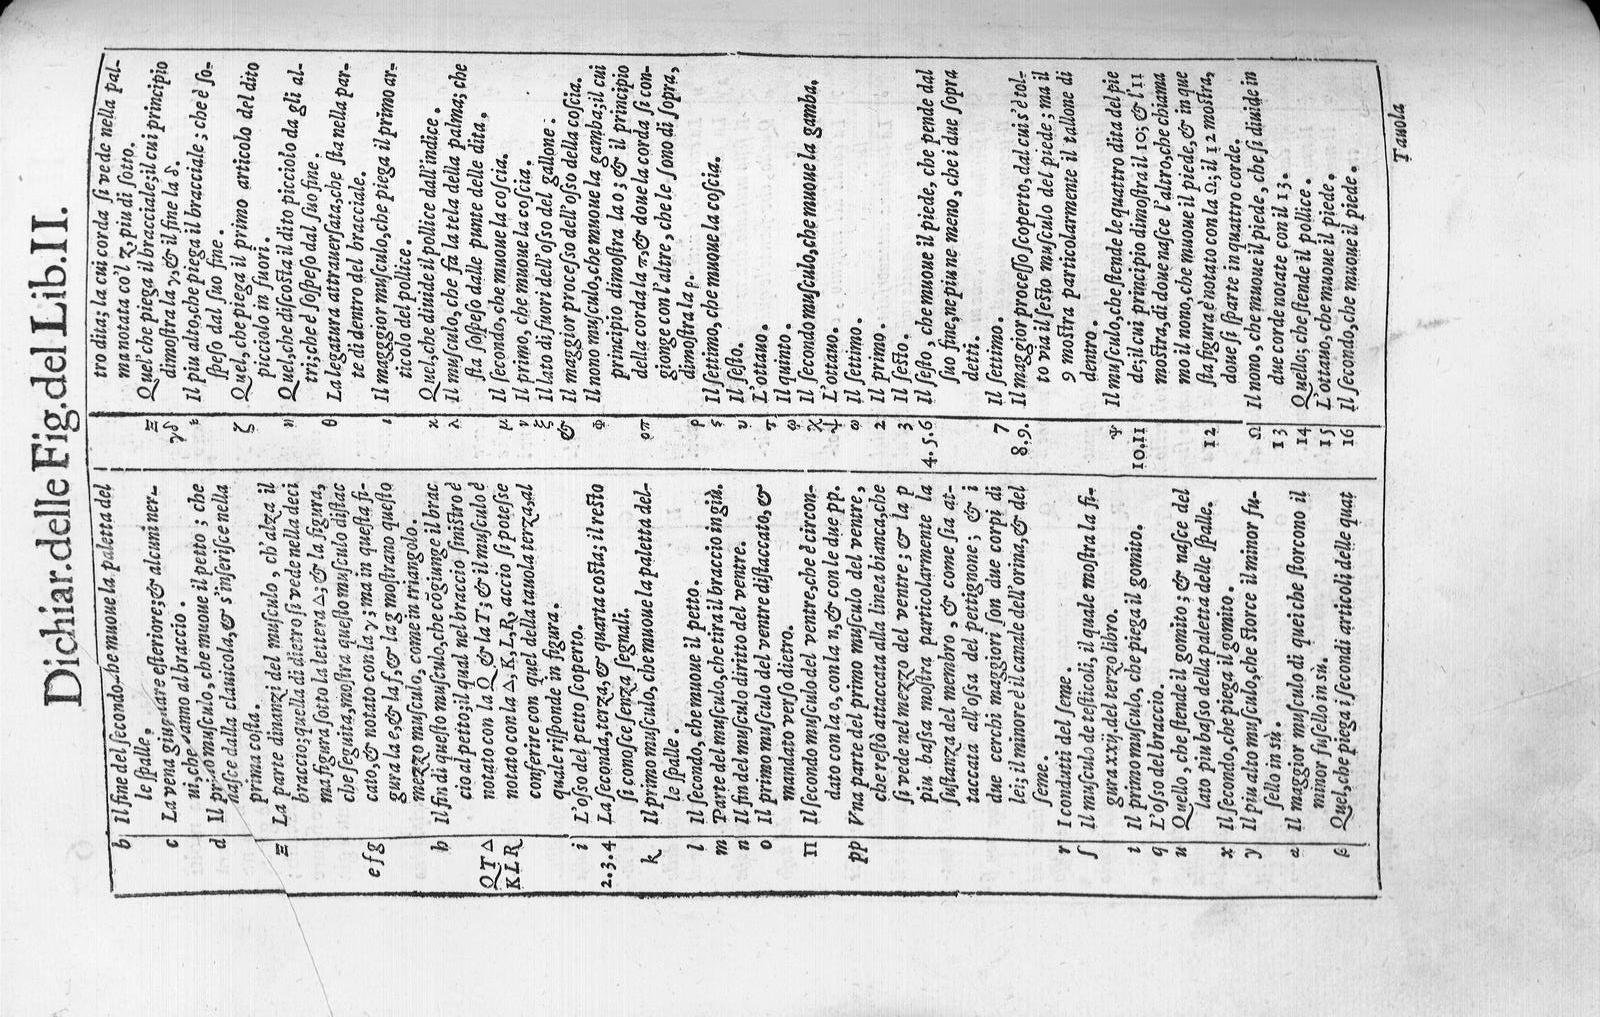 Dichiar. delle Fig. del Lib. II.
b Il fine del secondo, che muoue la paletta del
le spalle.
c La vena giugulare esteriore; & alcuni ner-
ui, che vanno al braccio.
d Il primo musculo, che muoue il petto; che
nasce dalla clauicola, & s'inserisce nella
prima costa.
Ξ La parte dinanzi del musculo, ch'alza il
braccio; quella di dietro si vede nella deci
ma figura, sotto la lettera Δ; & la figura,
che seguita, mostra questo musculo distac
e f g cato, & notato con la γ; ma in questa fi-
gura la e, & la f, & la g mostrano questo
mezzo musculo, come in triangolo.
h Il fin di questo musculo, che cōgiunge il brac
cio al petto; il qual nel braccio sinistro è
Q T Δ notato con la Q & la T; & il musculo è
K L R notato con la Δ, K, L, R, accio si potesse
conferire con quel della tauola terza, al
quale risponde in figura.
i L'osso del petto scoperto.
2. 3. 4 La seconda, terza, & quarta costa; il resto
si conosce senza segnali.
k Il primo musculo, che muoue la paletta del-
le spalle.
l Il secondo, che muoue il petto.
m Parte del musculo, che tira il braccio in giù.
n Il fin del musculo diritto del ventre.
o Il primo musculo del ventre distaccato, &
mandato verso dietro.
Π Il secondo musculo del ventre, che è circon-
dato con la o, con la n, & con le due pp.
pp Vna parte del primo musculo del ventre,
che restò attaccata alla linea bianca, che
si vede nel mezzo del ventre; & la p
piu bassa mostra particolarmente la
sustanza del membro, & come sia at-
taccata all'ossa del pettignone; & i
due cerchi maggiori son due corpi di
lei; il minore è il canale dell'orina, & del
seme.
r I condutti del seme.
s Il musculo de testicoli, il quale mostra la fi-
gura xxij. del terzo libro.
t Il primo musculo, che piega il gomito.
q L'osso del braccio.
u Quello, che stende il gomito; & nasce del
lato piu basso della paletta delle spalle.
x Il secondo, che piega il gomito.
y Il piu alto musculo, che storce il minor fu-
sello in sù.
α Il maggior musculo di quei che storcono il
minor fusello in sù.
β Quel, che piega i secondi articoli delle quat
tro dita; la cui corda si vede nella pal-
ma notata co'l ʒ piu di sotto.
Ξ Quel' che piega il bracciale; il cui principio
γ δ dimostra la γ, & il fine la δ.
ε Il piu alto, che piega il bracciale; che è so-
speso dal suo fine.
ζ Quel, che piega il primo articolo del dito
picciolo in fuori.
η Quel, che discosta il dito picciolo da gli al-
tri; che è sospeso dal suo fine.
θ La legatura attrauersata, che sta nella par-
te di dentro del bracciale.
ι Il maggior musculo, che piega il primo ar-
ticolo del pollice.
κ Quel, che diuide il pollice dall'indice.
λ Il musculo, che fà la tela della palma; che
sta sospeso dalle punte delle dita.
μ Il secondo, che muoue la coscia.
ν Il primo, che muoue la coscia.
ξ Il lato di fuori dell'osso del gallone.
& Il maggior processo dell'osso della coscia.
Φ Il nono musculo, che muoue la gamba; il cui
principio dimostra la o; & il principio
ο π della corda la π, & doue la corda si con-
gionge con l'altre, che le sono di sopra,
dimostra la ρ.
ρ Il settimo, che muoue la coscia.
ς Il sesto.
υ L'ottauo.
τ Il quinto.
φ Il secondo musculo, che muoue la gamba.
χ L'ottauo.
ψ Il settimo.
ω Il primo.
2 Il sesto.
3 Il sesto, che muoue il piede, che pende dal
4. 5. 6 suo fine, ne piu ne meno, che i due sopra
detti.
7 Il settimo.
8. 9. Il maggior processo scoperto, dal cui s'è tol-
to via il sesto musculo del piede; ma il
9 mostra particolarmente il tallone di
dentro.
Ψ Il musculo, che stende le quattro dita del pie
10. 11 de; il cui principio dimostra il 10; & l'11
mostra, di doue nasce l'altro, che chiama
mo il nono, che muoue il piede, & in que
12 sta figura è notato con la Ω; il 12 mostra,
doue si sparte in quattro corde.
Ω Il nono, che muoue il piede, che si diuide in
13 due corde notate con il 13.
14 Quello; che stende il pollice.
15 L'ottauo, che muoue il piede.
16 Il secondo, che muoue il piede.
Tauola